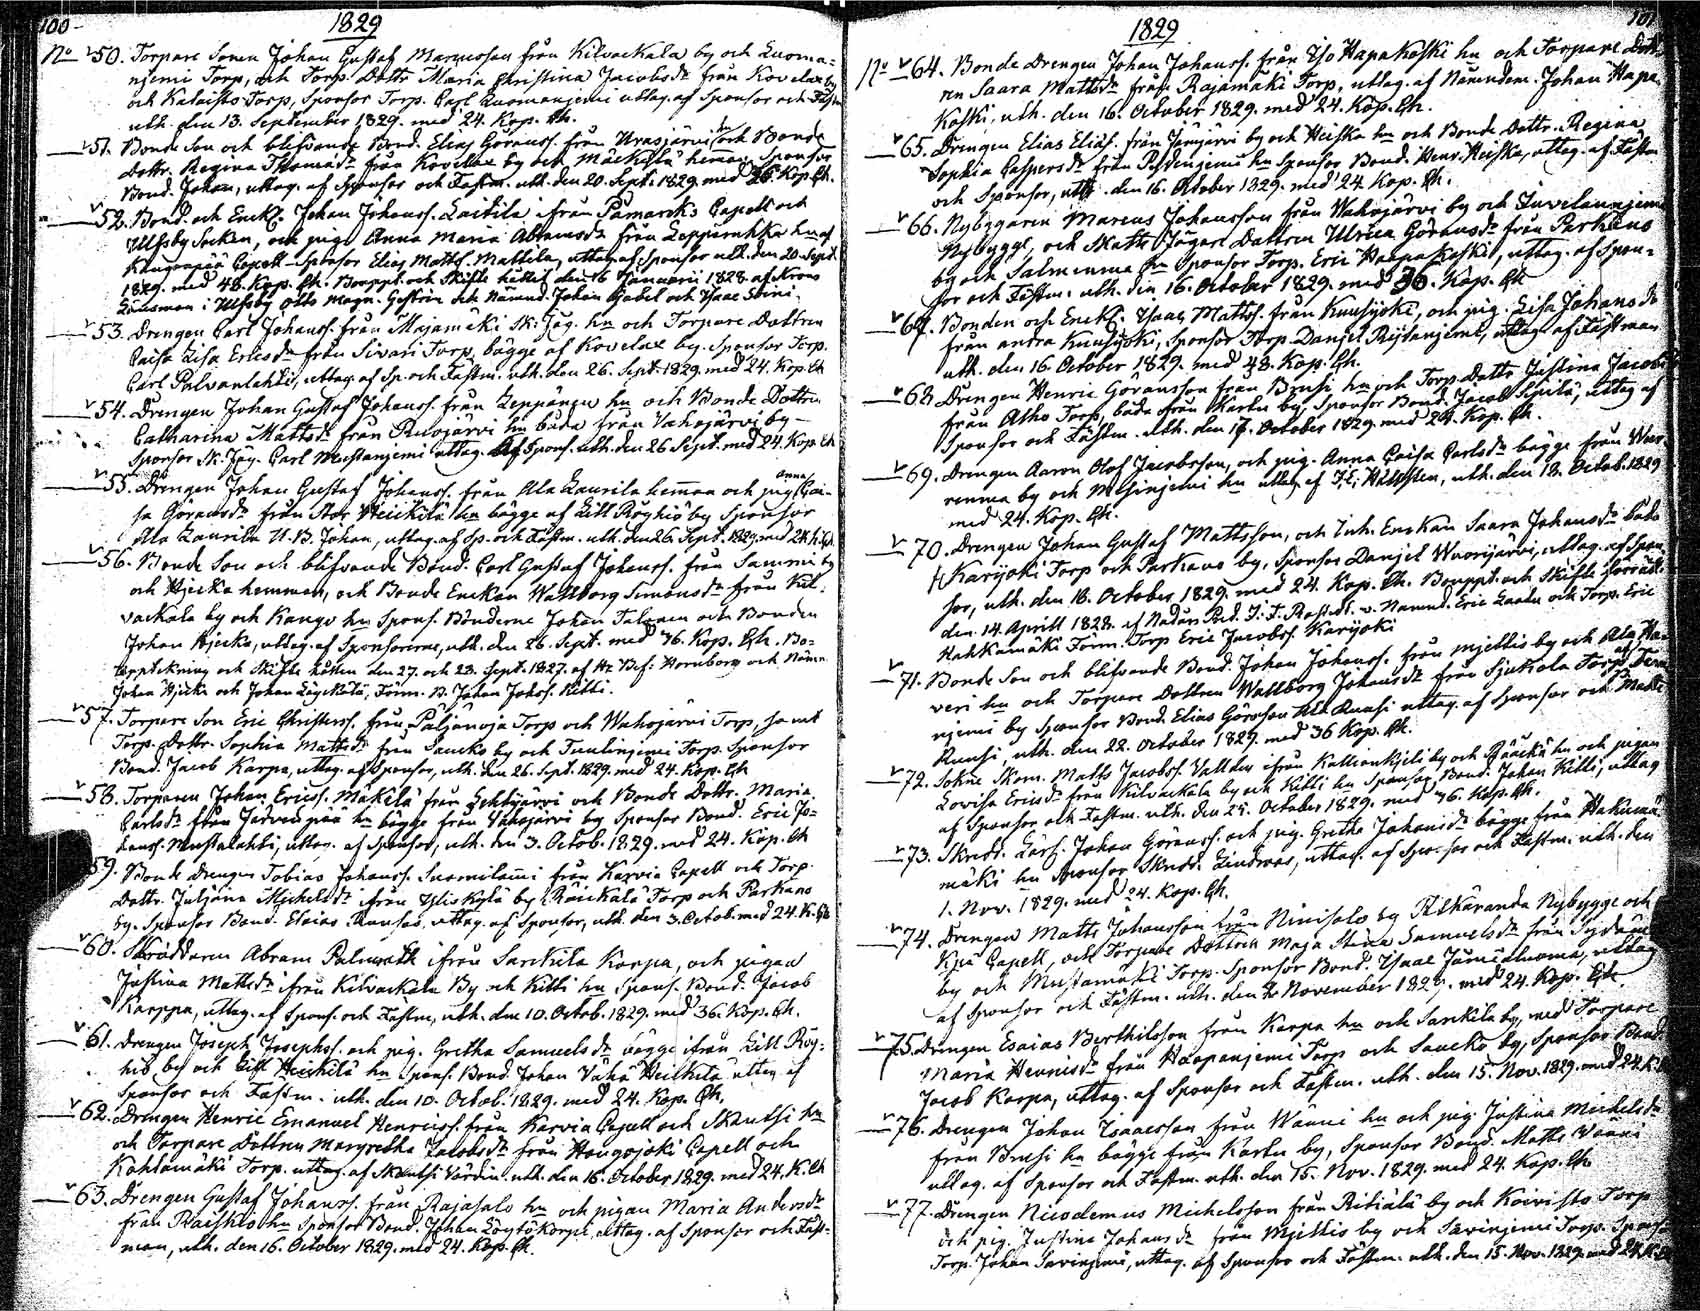 100
1829
No 50. Torpare Sonen Johan Gustaf Marcusson från Kilvackala by och Luoma=
njemi Torp, och Torp. Dottr. Maria Christina Jacobsdr från Kovelax by
och Kataisto Torp, Sponsor Torp. Carl Luomanjemi uttag. af Sponsor och Fästm
uth. den 13. September 1829. med 24. Kop. Ch.
51. Bonde Son och blifvande Bond. Elias Göranss. från Urasjärvi hn och Bonde
Dottr. Regina Thomædr från Kovelax by och Mäckilä heman Sponsor
Bond. Johan, uttag. af Sponsor och Fastm. uth. den 20. Sept. 1829. med 36. Kop. Ch.
52. Bond. och Enckl. Johan Johanss. Laitila ifrån Påmarcks Capell och
Ulfsby Socken, och pig. Anna Maria Abramsdr från Leppänhka hn af
Kangvapää Capell Sponsor Elias Matts. Mattila, uttag. af Sponsor uth. den 20. Sept.
1829. med 48. Kop. Ch. Bouppt. och Skifte hållit den 16 Januarii 1828. af Krono
Länsman i Ulfsby Otto Magn. Gestrin och Nämnd. Johan Gabel och Isaac Soini.
53. Drengen Carl Johanss. från Majamäki Sk. Jäg. hn och Torpare Dottren
Caisa Lisa Ericsdr från Sivari Torp, bägge af Kovelax by. Sponsor Torp.
Carl Palvanlahti, uttag. af Sp. och Fastm. uth. den 26. Sept. 1829. med 24. Kop. Ch
54. Drengen Johan Gustaf Johanss. från Leppänen hn och Bonde Dottren
Catharina Mattsdr från Ruojärvi hn båda från Vahojärvi by
Sponsor Sk. Jäg. Carl Mustanjemi uttag. af Spons. uth. den 26 Sept. med 24. Kop. Ch
55. Drengen Johan Gustaf Johanss. från Ala Laurila heman och pig. Anna Cai=
sa Göransdr från Stor Heickilä hn bägge af Lill Röyhiö by Sponsor
Ala Laurila U. B. Johan, uttag. af Sp. och Fästm. uth. den 26. Sept. 1829. med 24. K. Ch
56. Bonde Son och blifvande Bond. Carl Gustaf Johanss. från Sammi by
och Hjicka hemman, och Bonde Enckan Wallborg Simonsdr från Kil=
vackala by och Kango hn Spons. Bönderne Johan Talonen och Bonden
Johan Hjicka, uttag. af Sponsorerne, uth. den 26. Sept. med 36. Kop. Ch. Bo=
uppteckning och Skifte hållen den 27. och 28. Sept. 1827. af Hr Bef: Hornborg och Nämn.
Johan Hjicki och Johan Läyckilä, Förm. B. Johan Johss. Kitti.
57. Torpare Son Eric Christerss. från Päljänoja Torp och Wahojärvi Torp, samt
Torp. Dottr. Sophia Mattsdr från Saucko by och Tuulinjemi Torp. Sponsor
Bond. Jacob Karpa, uttag. af Sponsor, uth. den 26. Sept. 1829. med 24. Kop. Ch
58. Torparen Johan Ericss. Mäkelä från Lehtjärvi och Bonde Dottr. Maria
Carlsdr från Järvenpää hn bägge från Vahojärvi by Sponsor Bond. Eric Jo=
hanss. Mustalahti, uttag. af Sponsor, uth. den 3. Octob. 1829. med 24. Kop. Ch
59. Bonde Drengen Tobias Johanss. Suomilami från Karvia Capell och Torp.
Dottr. Juliana Michelsdr ifrån Yliskylä by Räickälä Torp och Parkano
by. Sponsor Bond. Elaias Runsas, uttag. af Sponsor, uth. den 3. Octob. med 24. K. Ch
60. Skräddaren Abram Palmroth ifrån Sarckila Karpa, och pigan
Justina Mattsdr ifrån Kilvackala By och Kitti hn Spons. Bond. Jacob
Karppa, uttag. af Spons. och Fästm, uth. den 10. Octob. 1829. med 36. Kop. Ch.
61. Drengen Joseph Josephss. och pig. Gretha Samuelsdr bägge ifrån Lill Röy=
hiö by och Lill Heickilä hn Spons. Bond. Johan Vähä Heickilä uttag. af
Sponsor och Fastm. uth. den 10. Octob. 1829. med 24. Kop. Ch.
62. Drengen Henric Emanuel Henricss. från Karvia Capell och Skantsi hn
och Torpare Dottren Margretha Jacobsdr från Hongojoki Capell och
Kohlamäki Torp. uttag. af Skantsi Värdin. uth. den 16. October 1829. med 24. K. Ch
63. Drengen Gustaf Johanss. från Rajasalo hn och pigan Maria Andersdr
från Raiskio hn Sponsor Bond. Johan Löytökorpi, uttag. af Sponsor och Fäst=
man, uth. den 16. October 1829. med 24. Kop. Ch.
101
1829
No 64. Bonde Drengen Johan Johanss. från Iso Hapakoski hn och Torpare Dott=
ren Saara Mattsdr från Rajamäki Torp, uttag. af Nämndem. Johan Hapa
Koski, uth. den 16. October 1829. med 24. Kop. Ch.
65. Drengen Elias Eliass. från Jämijärvi by och Heiska hn och Bonde Dottr. Regina
Sophia Caspersdr från Pestinjemi hn Sponsor Bond. Henr. Heiska, uttag. af Fästm
och Sponsor, uth. den 16. October 1829. med 24. Kop. Ch.
66. Nybyggaren Marcus Johansson från Wahojärvi by och Luvelaunjemi
Nybygge, och Skatte Jägare Dottren Ulrica Göransdr från Parkano
by och Salmenma hn Sponsor Torp. Eric Haapakoski, uttag. af Spon=
sor och Fästm. uth. den 16. October 1829. med 36. Kop. Ch
67. Bonden och Enckl. Isaac Matts. från Kuusijoki, och pig. Lisa Johansdr
från andra Kuusijoki, Sponsor Torp. Danjel Reijtanjemi, uttag. af Fästman
uth. den 16. October 1829. med 48. Kop. Ch.
68. Drengen Henric Göransson från Brusi hn och Torp. Dottr. Justina Jacobsdr
från Alho Torp, båda från Kartu by, Sponsor Bond. Jacob Seppilä, uttag af
Sponsor och Fästm. uth. den 17. October 1829. med 24. Kop. Ch.
69. Drengen Aaron Olof Jacobsson, och pig. Anna Caisa Carlsdr bägge från Wuo
renmaa by och uttag. af uth. den 18. Octob. 1829
med 24. Kop. Ch.
70. Drengen Johan Gustaf Mattsson, och Inh. Enckan Saara Johansdr båda
fr Karijoki Torp och Parkano by, Sponsor Danjel Wuorijärvi, uttag. af Spon=
sor, uth. den 18. October 1829. med 24. Kop. Ch. Bouppt. och Skifte förrätt.
den 14. Aprill 1828. af Nådårs Pred. J. F. Rostedt. o. Nämnd. Eric Laatu och Torp. Eric
Kahkamäki Förm. Torp Eric Jacobss. Karijoki
71. Bonde Son och blifvande Bond. Johan Johanss. från mjettis by och Ala Ha=
veri hn och Torpare Dottren Wallborg Johansdr från Sjukola Torp af Ter
njemi by Sponsor Bond. Elias Görsson Ala Ruusi uttag. af Sponsor och Matts
Ruusi, uth. den 22. October 1829. med 36 Kop. Ch.
72. Sokne Skom. Matts Jacobss. Vallden ifrån Kallionkjeli by och Jääckä hn och pigan
Lovisa Ericsdr från Kilvackala by och Kitti hn Sponsor Bond. Johan Kitti, uttag
af Sponsor och Fastm. uth. den 25. October 1829. med 36. Kop. Ch.
73. Skrädd. Lärl. Johan Göranss. och pig. Gretha Johansdr bägge från Hakuma
mäki hn Sponsor Skrädd. Lindroos, uttag. af Sponsor och Fästm. uth. den
1. Nov. 1829. med 24. Kop. Ch.
74. Drengen Matts Johansson från Niinisalo by Nybygge och
Capell, och Torpare Dottren Maja Stina Samuelsdr från Sydän
by och Mustamäki Torp. Sponsor Bond. Isaac Jämiäluoma, uttag
af Sponsor och Fästm. uth. den 8 November 1829. med 24. Kop. Ch.
75. Drengen Esaias Berthilsson från Karpa hn och Sarckila by, med Torpare
Maria Henricsdr från Haapanjemi Torp och Saucko by, Sponsor Bond.
Jacob Karpa, uttag. af Sponsor och Fästm. uth. den 15. Nov. 1829. med 24. K. Ch
76. Drengen Johan Isaacsson från Wänni hn och pig. Justina Michelsdr
från Brusi hn bägge från Kartu by, Sponsor Bond. Matts Vänni
uttag. af Sponsor och Fastm. uth. den 15. Nov. 1829. med 24. Kop. Ch
77. Drengen Nicodemus Michelsson från Ritiälä by och Koivisto Torp
och pig. Justina Johansdr från Mjettis by och Savinjemi Torp. Spons=
Torp. Johan Savinjemi, uttag. af Sponsor och Fästm. uth. den 15. Nov. 1829. med 24. K. Ch